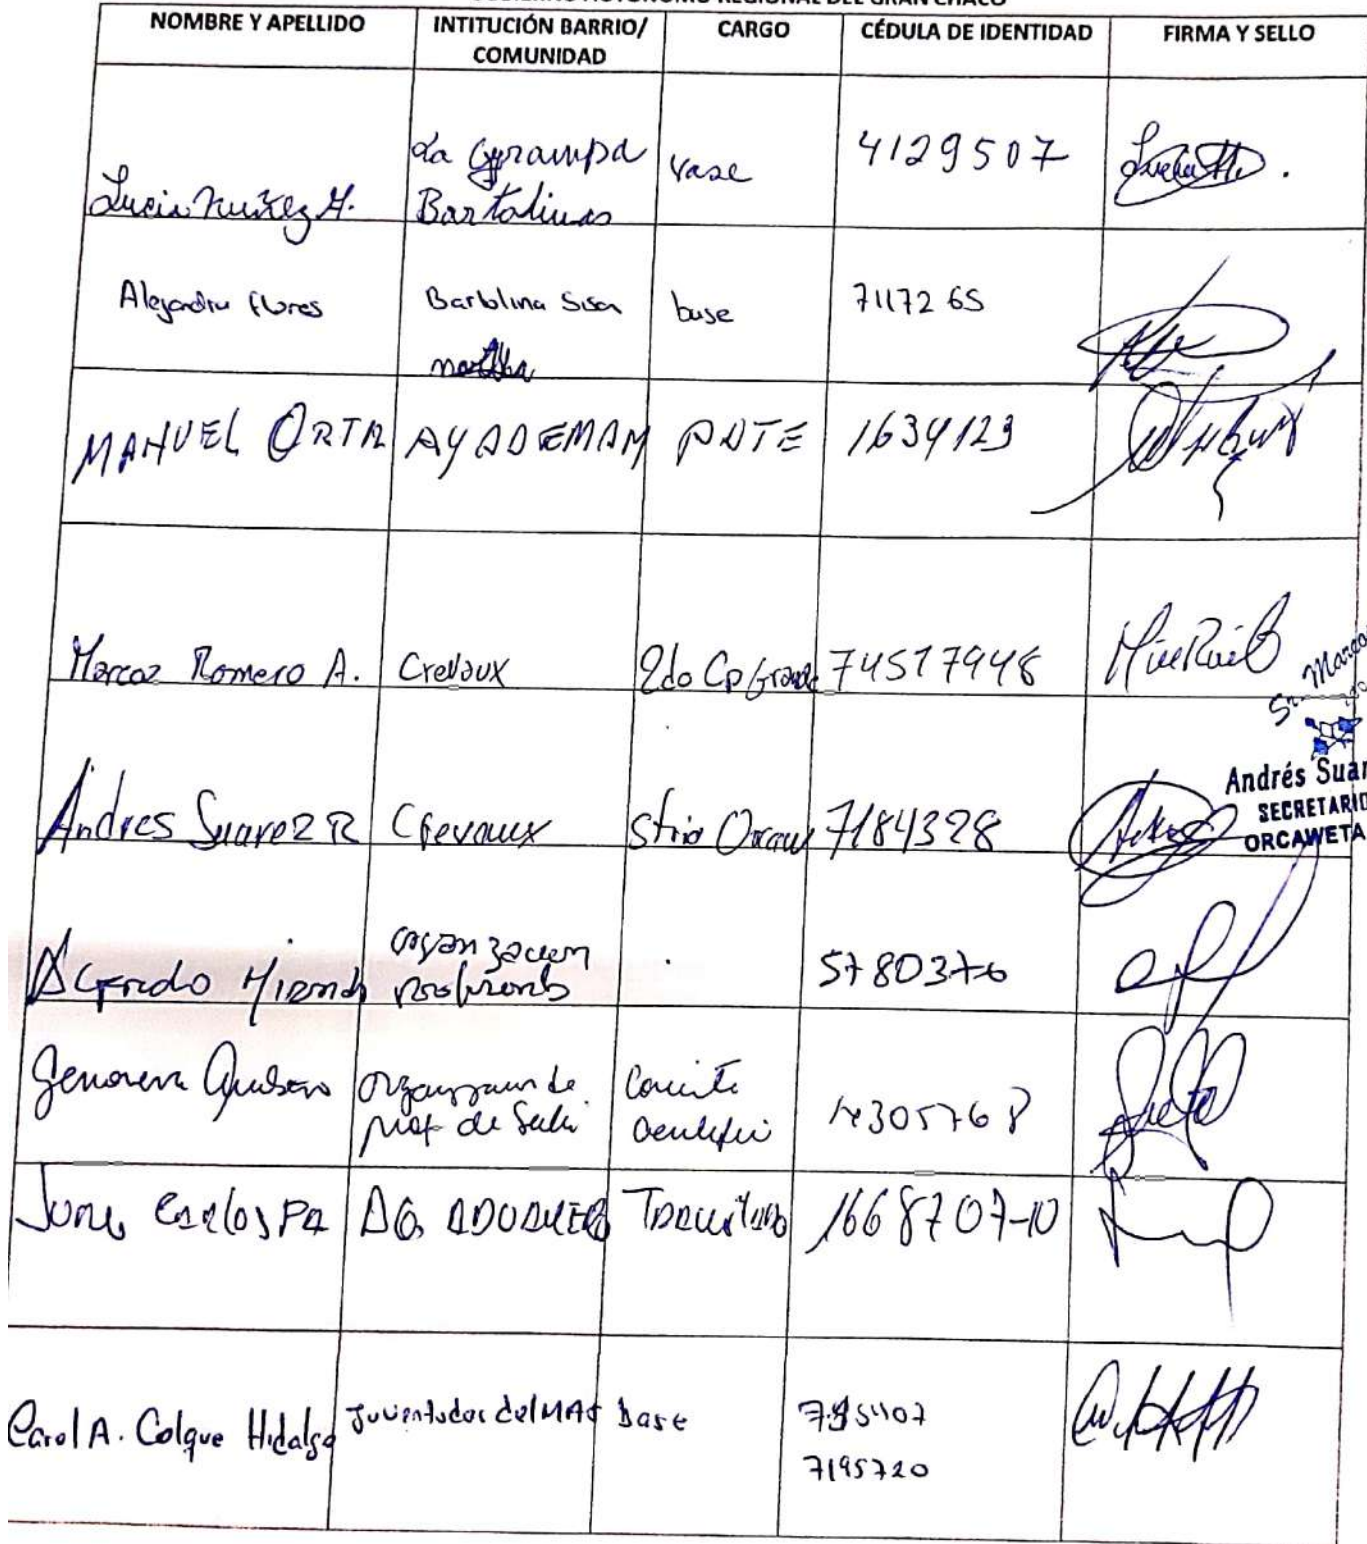 GOBIERNO AUTÓNOMO REGIONAL DEL GRAN CHACO
NOMBRE Y APELLIDO INTITUCIÓN BARRIO/ COMUNIDAD CARGO CÉDULA DE IDENTIDAD FIRMA Y SELLO
Lucia Nuñez M. La Grampa Bartolinas vase 4129507
Alejandra Flores Bartolina Sisa base 7117265
MANUEL ORTIZ AYADEMAM PDTE 1634123
Marcoz Romero A. Crevaux 2do Cp Grande 74517948
Sr. Marco
Andres Suarez R Crevaux Strio 7184328
Andrés Suar
SECRETARIO
ORCAWETA
Alfredo Miranda organizacion 5780376
Genoveva organizacion de prof. de Comite
Carlos AG. 1668707-10
Carol A. Colque Hidalgo Juventudes del MAS base
7195720